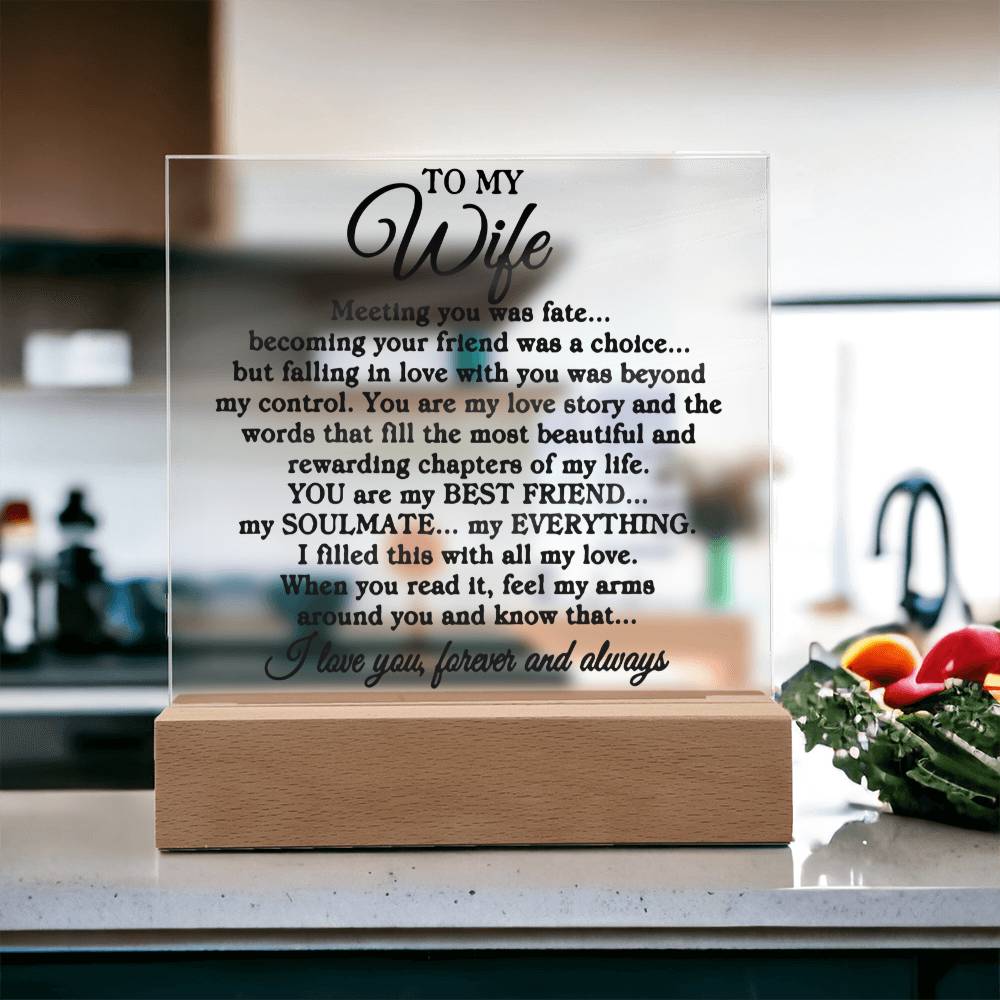 TO MY
Wife
Meeting you was fate...
becoming your friend was a choice...
but falling in love with you was beyond
my control. You are my love story and the
words that fill the most beautiful and
rewarding chapters of my life.
YOU are my BEST FRIEND...
my SOULMATE... my EVERYTHING.
I filled this with all my love.
When you read it, feel my arms
around you and know that...
I love you, forever and always